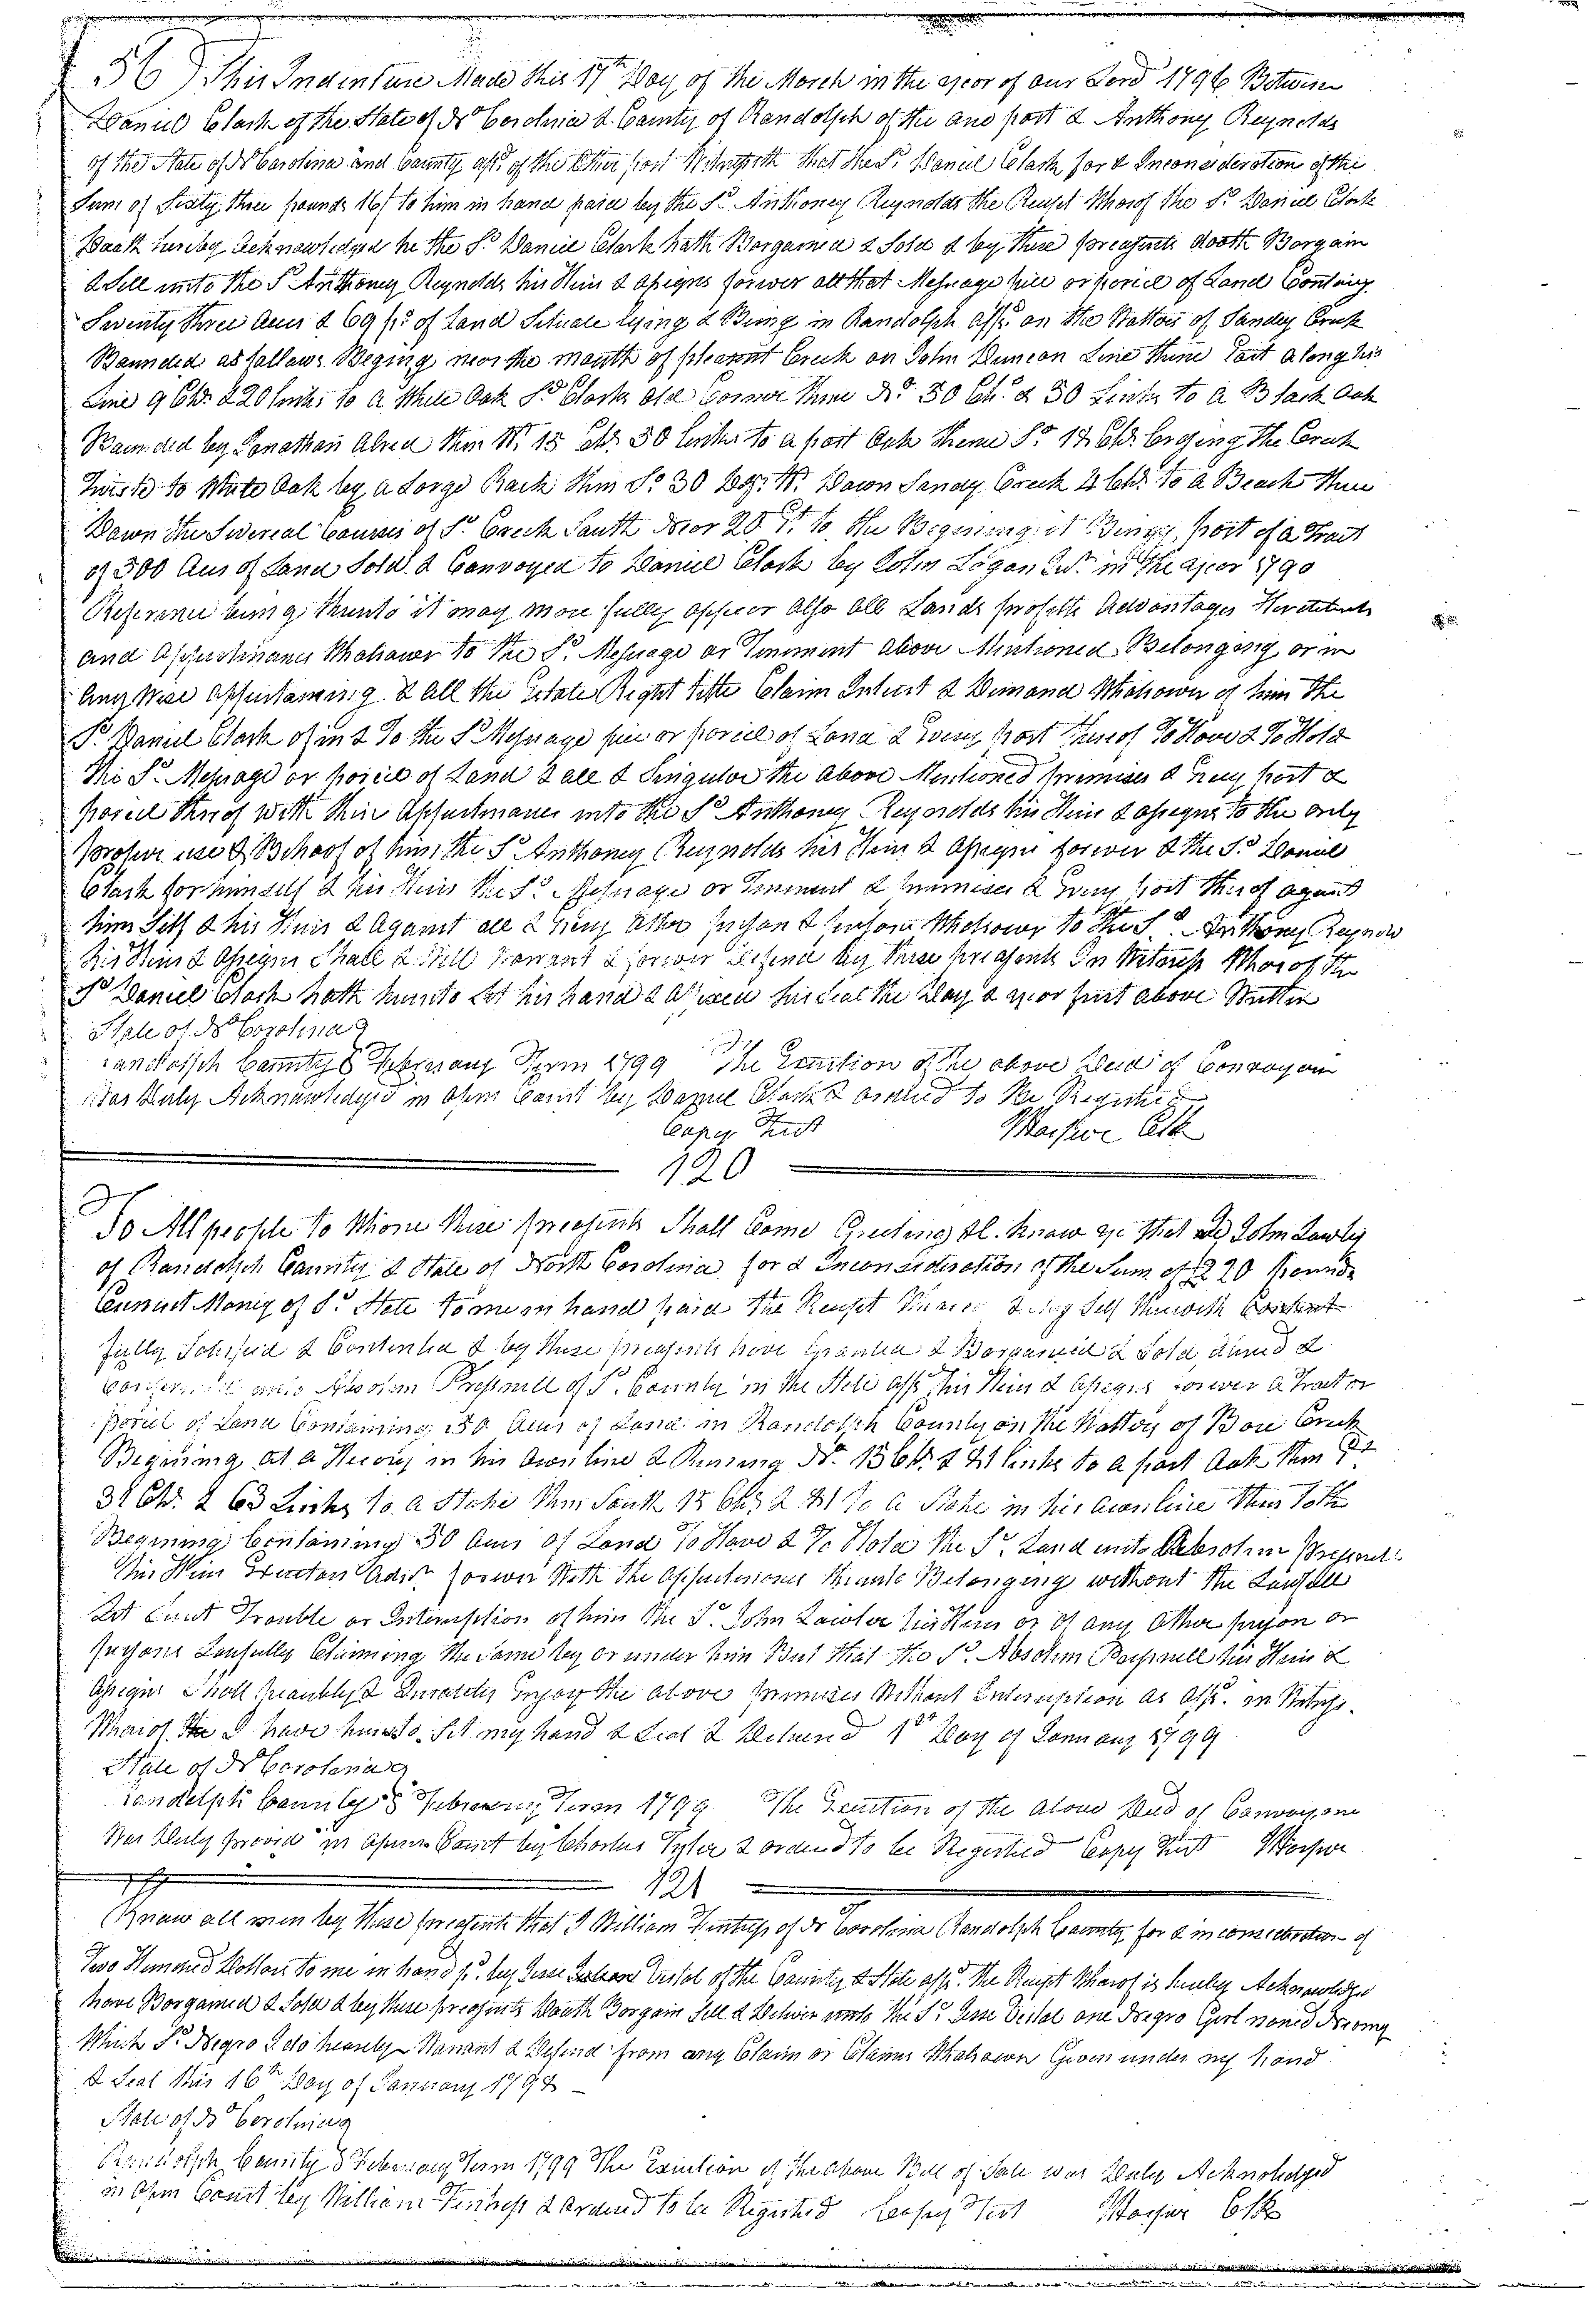 56) This Indenture Made this 17th Day of the March in the year of our Lord 1796 Between
Daniel Clark of the State of No Corolina & County of Randolph of the one part & Anthony Reynolds
of the State of No Carolina and County afsd of the Other part Witnesseth that the Sd Daniel Clark for & Inconsideration of the
Sum of Sixty three pounds 16/ to him in hand paid by the Sd Anthoney Reynolds the Receipt Whereof the Sd Daniel Clark
Doath hereby Acknowledged he the Sd Daniel Clark hath Borgained & Sold & by these preasents doath Borgain
& Sell unto the Sd Anthoney Reynolds his Heirs & Assigns forever all that Messuage piece or porcel of Land Containg
Seventy three Acres & 69 ps of Land Situate lying & Being in Randolph afsd on the Wattors of Sandey Creek
Bounded as follows Beging near the mouth of pleasant Creek on John Duncan Line thence East along his
Line 9 Chs & 20 links to a White Oak Sd Clarks old Corner thence No 30 Ch. & 50 Links to a Black Oak
Bounded by Jonathan Alred then W. 15 Chs 50 links to a post Oak thence So 12 Chs Crosing the Creek
Twiste to White Oak by a Large Rack then So 30 Dg. W. Down Sandy Creek 4 Chs to a Beach then
Down the Several Courses of Sd Creek South Near 20 Ch. to the Begining it Being part of a Tract
of 300 Acres of Land Sold & Convoyed to Daniel Clark by John Logan Esr in the year 1790
Referrence being thereunto it may more fully appear Also all Lands profitts Advantages
and Appurtinances Whatsower to the Sd Messuage or Tenement above Mentioned Belonging or in
Any Wise Appurtaining & all the Estate Right title Claim Intrest & Demand Whatsower of him the
Sd Daniel Clark of in & To the Sd Messuage piece or porcel of Land & Every Part thereof To Have & To Hold
the Sd Messuage or porcel of Land & all & Singulor the above Mentioned premises & Every part &
porcel thereof with their Appurtinances unto the Sd Anthoney Reynolds his Heirs & assigns to the only
proper use & Behoof of him the Sd Anthoney Reynolds his Heirs & Assigns forever & the Sd Daniel
Clark for himself & his Heirs the Sd Messuage or Tenement & premises & Every port thereof against
him Self & his Heirs & Against all & Every other person & persons Whatsower to the Sd Anthoney Reynolds
his Heirs & Assigns Shall & Will Warrant & forever Defend by these preasents In Witness Whereof the
Sd Daniel Clark hath hereunto Set his hand & Afixed his Seal the Day & year first above Written
State of No Corolina
Randolph County S February Term 1799 The Execution of the above Deed of Convoyance
Was Duly Acknowledged in Open Court by Daniel Clark & ordered to be Registered
Copey Test Harper Clk
120
To All people to Whome these preasents Shall Come Greeting &c. know ye that I John Lawler
of Randolph County & State of North Corolina for & Inconsideration of the Sum of £220 Pounds
Currant Money of Sd State to me in hand paid the Receipt & my Self therewith Content
fully Satisfied & Contented & by these preasents have Granted & Borgained & Sold &
unto Absolom Presnell of Sd County in the State afsd his Heirs & Assigns forever a Tract or
porcel of Land Containing 50 Acres of Land in Randolph County on the Wattors of Bare Creek
Begining at a Hicory in his own line & Runing No. 13 Chs & 41 links to a post Oak then
31 Chs & 63 Links to a Stake then South 13 Chs & 41 to a Stake in his own line then to the
Begining Containing 50 Acres of Land To Have & To Hold the Sd Land unto Absolom Presnell
his Heirs Executors Adms forever With the Appurtenances thereunto Belonging without the Lawfull
Let Trouble or Interruption of him the Sd John Lawler his Heirs or of any Other person or
persons Lawfully Claiming the Same by or under him But that the Sd Absolom Presnell his Heirs &
Assigns Shall peaceably & Quiatly Enjoy the above premises Without Interruption as afsd. in Witness
Whereof the I have hereunto Set my hand & Seal & Delivered 1st Day of January 1799
State of No Corolina
Randolph County S February Term 1799 The Execution of the above Deed of Convoyance
Was Duly proved in Open Court by Charles Tyler & ordered to be Registred Copey Test Harper
121
Know all men by these preasents that I William Fentriss of No Corolina Randolph County for & in consideration of
Two Hundred Dollars to me in hand pd. by Jesse Vestol of the County & State afsd. the Receipt Whereof is hereby Acknowledged
have Borgained & Sold & by these preasents Doath Borgain Sell & Deliver unto the Sd Jesse Vestol one Negro Girl named
Which Sd Negro I do hearby Warrant & Defend from any Claim or Claims Whatsower Given under my hand
& Seal this 16th Day of January 1798
State of No Corolina
Randolph County S February Term 1799 The Execution of the above Bill of Sale was Duly Acknoledged
in Open Court by William Fentress & ordered to be Registred Copey Test Harper Clk